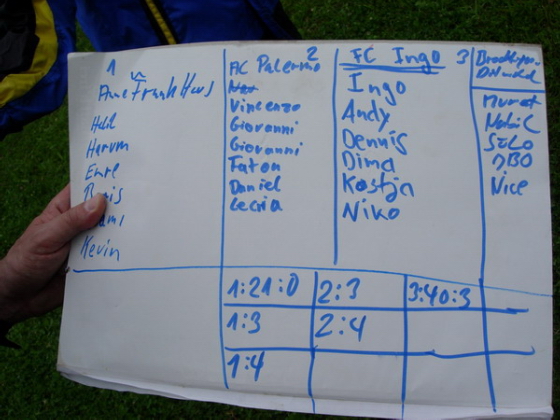 1
Anne Frank Haus
Halil
Harun
Emre
Kevin
2
AC Palermo
Vincenzo
Giovanni
Giovanni
Faton
Daniel
3
FC Ingo
Ingo
Andy
Dennis
Dima
Kostja
Niko
Murat
DBO
Nice
1:2 1:0 2:3 3:4 0:3
1:3 2:4
1:4